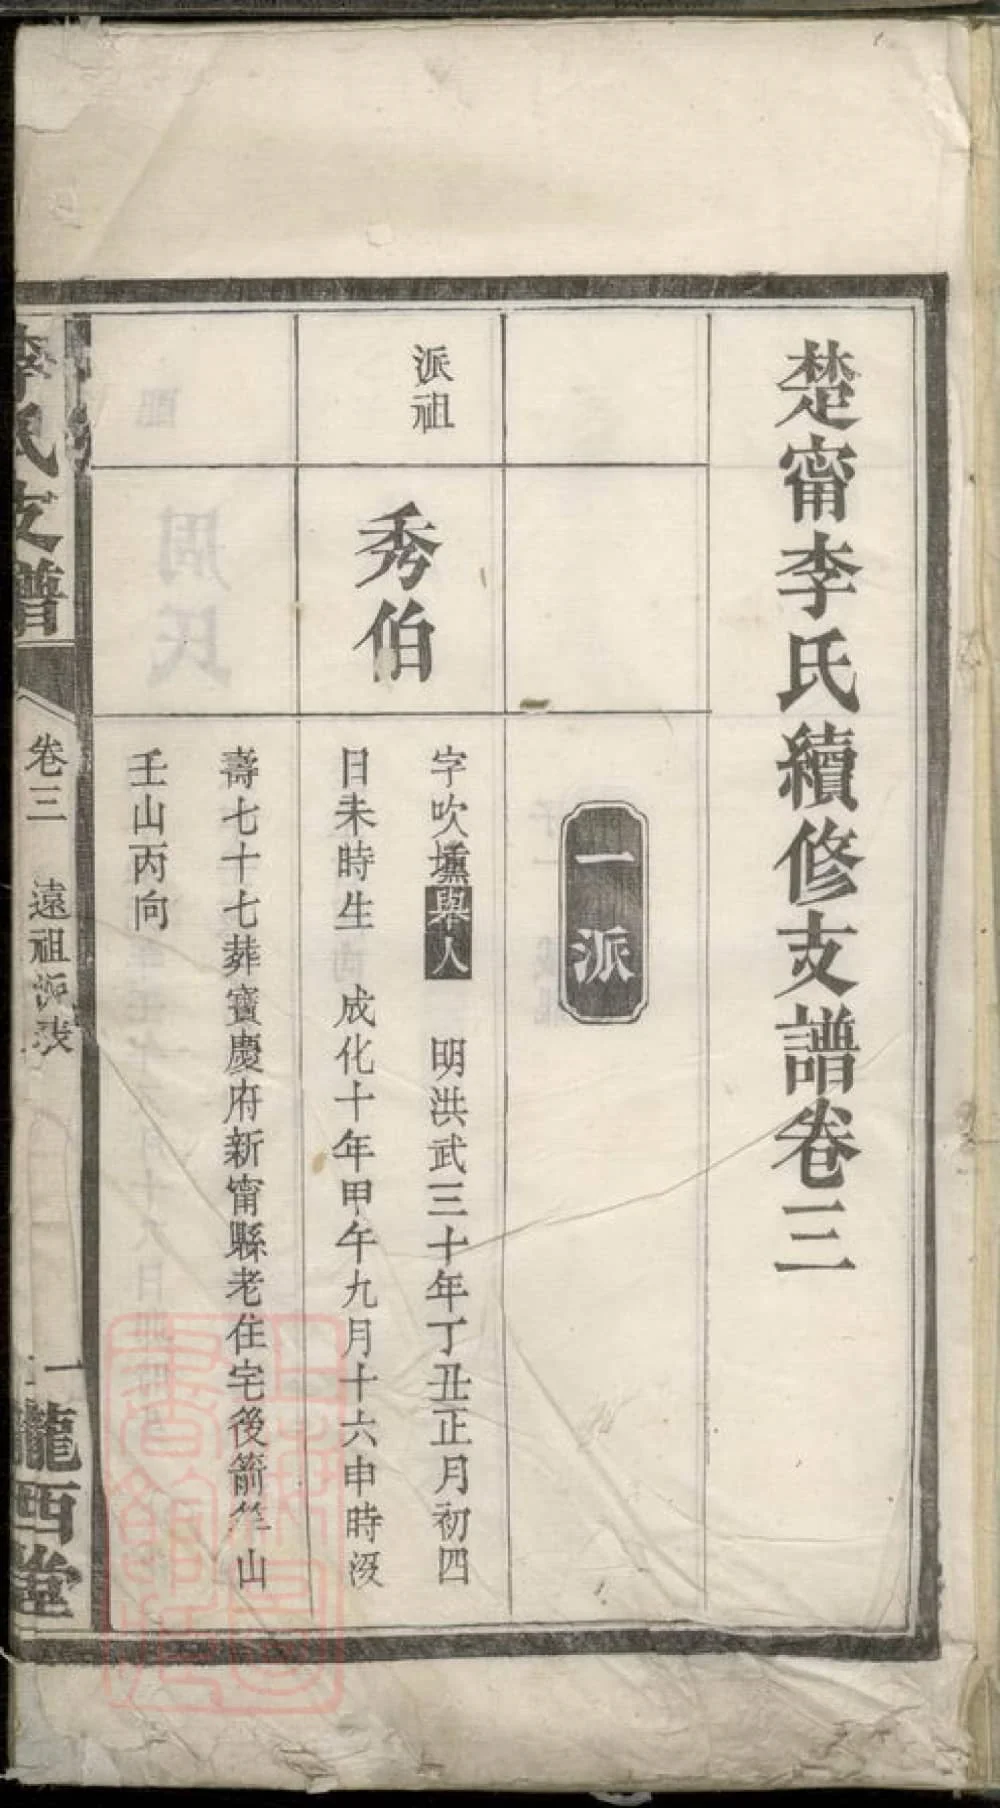 楚甯李氏續修支譜卷三
一派
派祖
秀伯
字吹壎舉人 明洪武三十年丁丑正月初四
日未時生 成化十年甲午九月十六申時沒
壽七十七葬寶慶府新甯縣老住宅後箭竿山
壬山丙向
李氏支譜
卷三 遠祖派表
一
隴西堂